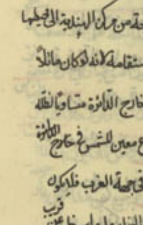 من مركز الهندية الى محيطها
ستقامة لانه لو كان مائلاً
خارج الدائرة متساويا لظله
ع معين للشمس في خارج الدائرة
في جهة الغرب فليكون
قريب